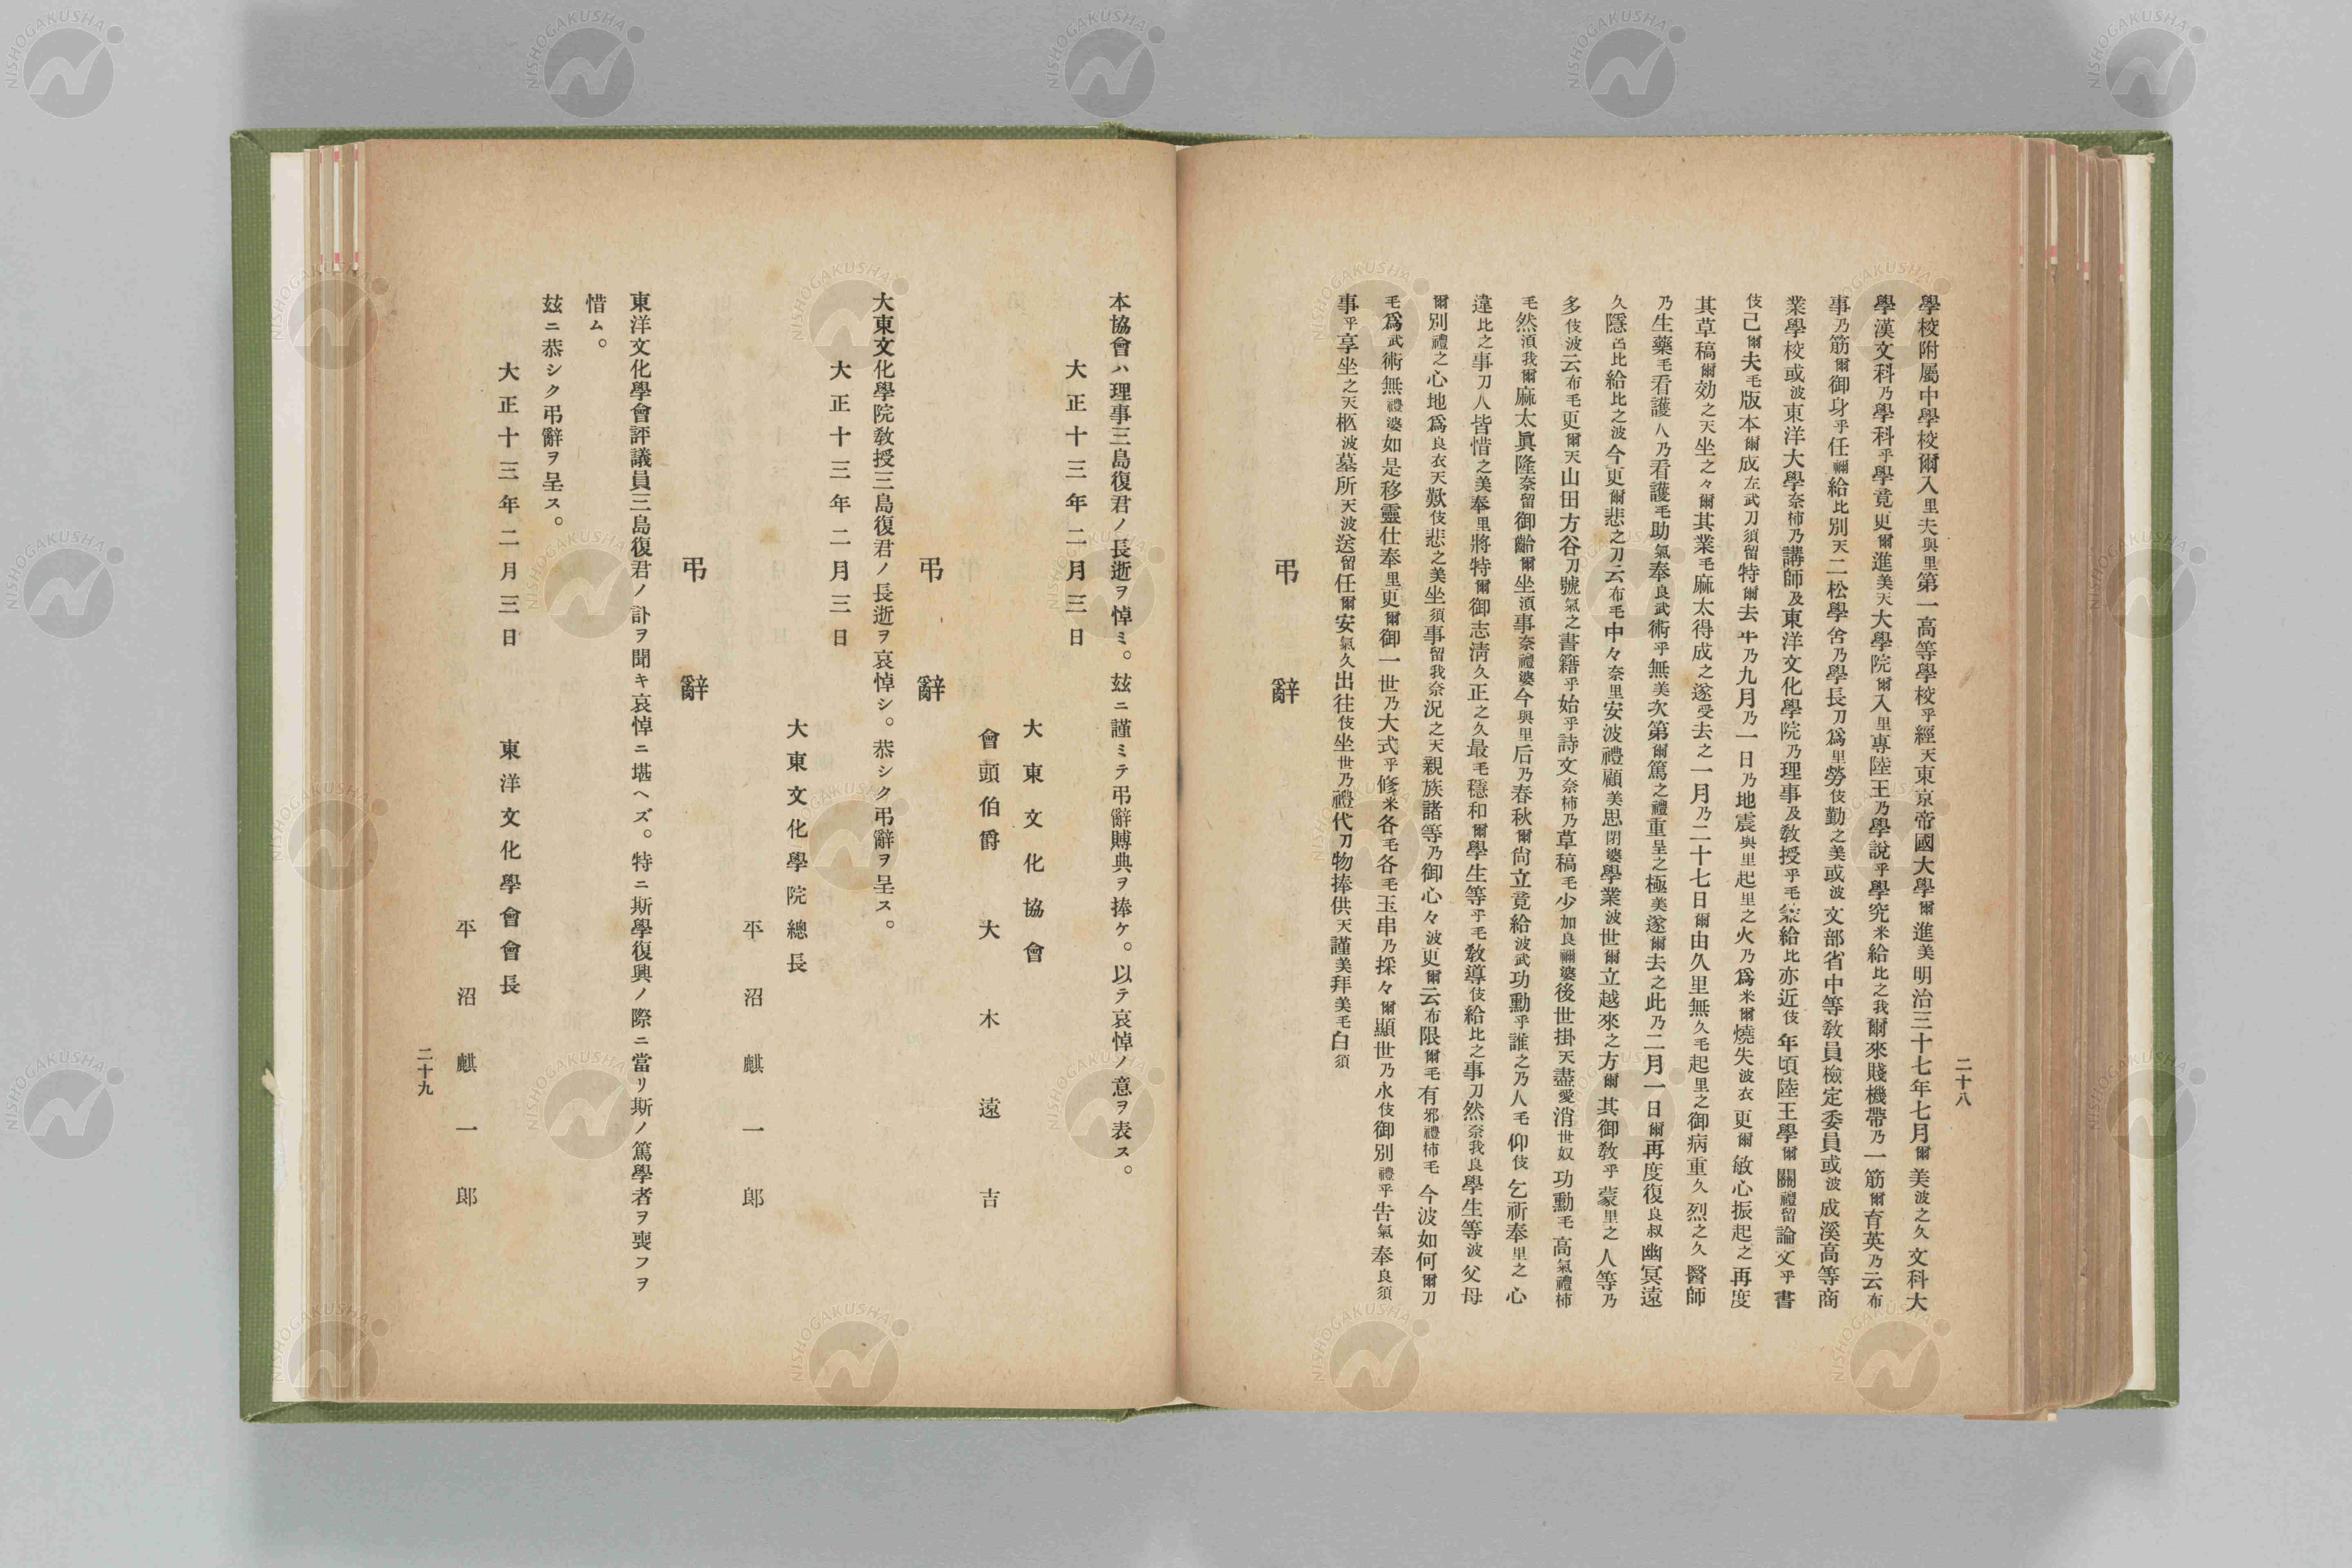 二十八
學校附屬中學校爾入里夫與里第一高等學校乎經天東京帝國大學爾進美明治三十七年七月爾美波之久文科大
學漢文科乃學科乎學竟更爾進美天大學院爾入里專陸王乃學說乎學究米給比之我爾來賤機帶乃一筋爾育英乃云布
事乃筋爾御身乎任禰給比別天二松學舍乃學長刀爲里勞伎勤之美或波文部省中等敎員檢定委員或波成溪高等商
業學校或波東洋大學奈柿乃講師及東洋文化學院乃理事及敎授乎毛給比亦近伎年頃陸王學爾關禮留論文乎書
伎己爾夫毛版本爾成左武刀須留特爾去年乃九月乃一日乃地震與里起里之火乃爲米爾燒失波衣更爾敏心振起之再度
其草稿爾効之天坐之々爾其業毛麻太得成之遂受去之一月乃二十七日爾由久里無久毛起里之御病重久烈之久醫師
乃生藥毛看護人乃看護毛助氣奉良武術乎無美次第爾篤之禮重呈之極美遂爾去之此乃二月一日爾再度復良叔幽冥遠
久隱呂比給比之波今更爾悲之刀云布毛中々奈里安波禮顧美思閉婆學業波世爾立越來之方爾其御敎乎蒙里之人等乃
多伎波云布毛更爾天山田方谷刀號氣之書籍乎始乎詩文奈柿乃草稿毛少加良禰婆後世掛天盡愛消世奴功勳毛高氣禮柿
毛然湏我爾麻太眞隆奈留御齡爾坐湏事奈禮婆今與里后乃春秋爾尙立竟給波武功勳乎誰之乃人毛仰伎乞祈奉里之心
違比之事刀人皆惜之美奉里將特爾御志淸久正之久最毛穩和爾學生等乎毛敎導伎給比之事刀然奈我良學生等波父母
爾別禮之心地爲良衣天歎伎悲之美坐須事留我奈況之天親族諸等乃御心々波更爾云布限爾毛有邪禮柿毛今波如何爾刀
毛爲武術無禮婆如是移靈仕奉里更爾御一世乃大式乎修米各毛各毛玉串乃採々爾顯世乃永伎御別禮乎告氣奉良須
事乎享坐之天柩波墓所天波送留任爾安氣久出往伎坐世乃禮代刀物捧供天謹美拜美毛白須
弔辭
本協會ハ理事三島復君ノ長逝ヲ悼ミ。玆ニ謹ミテ弔辭賻典ヲ捧ケ。以テ哀悼ノ意ヲ表ス。
大正十三年二月三日
大東文化協會
會頭伯爵 大木遠吉
弔辭
大東文化學院敎授三島復君ノ長逝ヲ哀悼シ。恭シク弔辭ヲ呈ス。
大正十三年二月三日
大東文化學院總長
平沼麒一郎
弔辭
東洋文化學會評議員三島復君ノ訃ヲ聞キ哀悼ニ堪ヘズ。特ニ斯學復興ノ際ニ當リ斯ノ篤學者ヲ喪フヲ
惜ム。
玆ニ恭シク弔辭ヲ呈ス。
大正十三年二月三日
東洋文化學會會長
平沼麒一郎
二十九